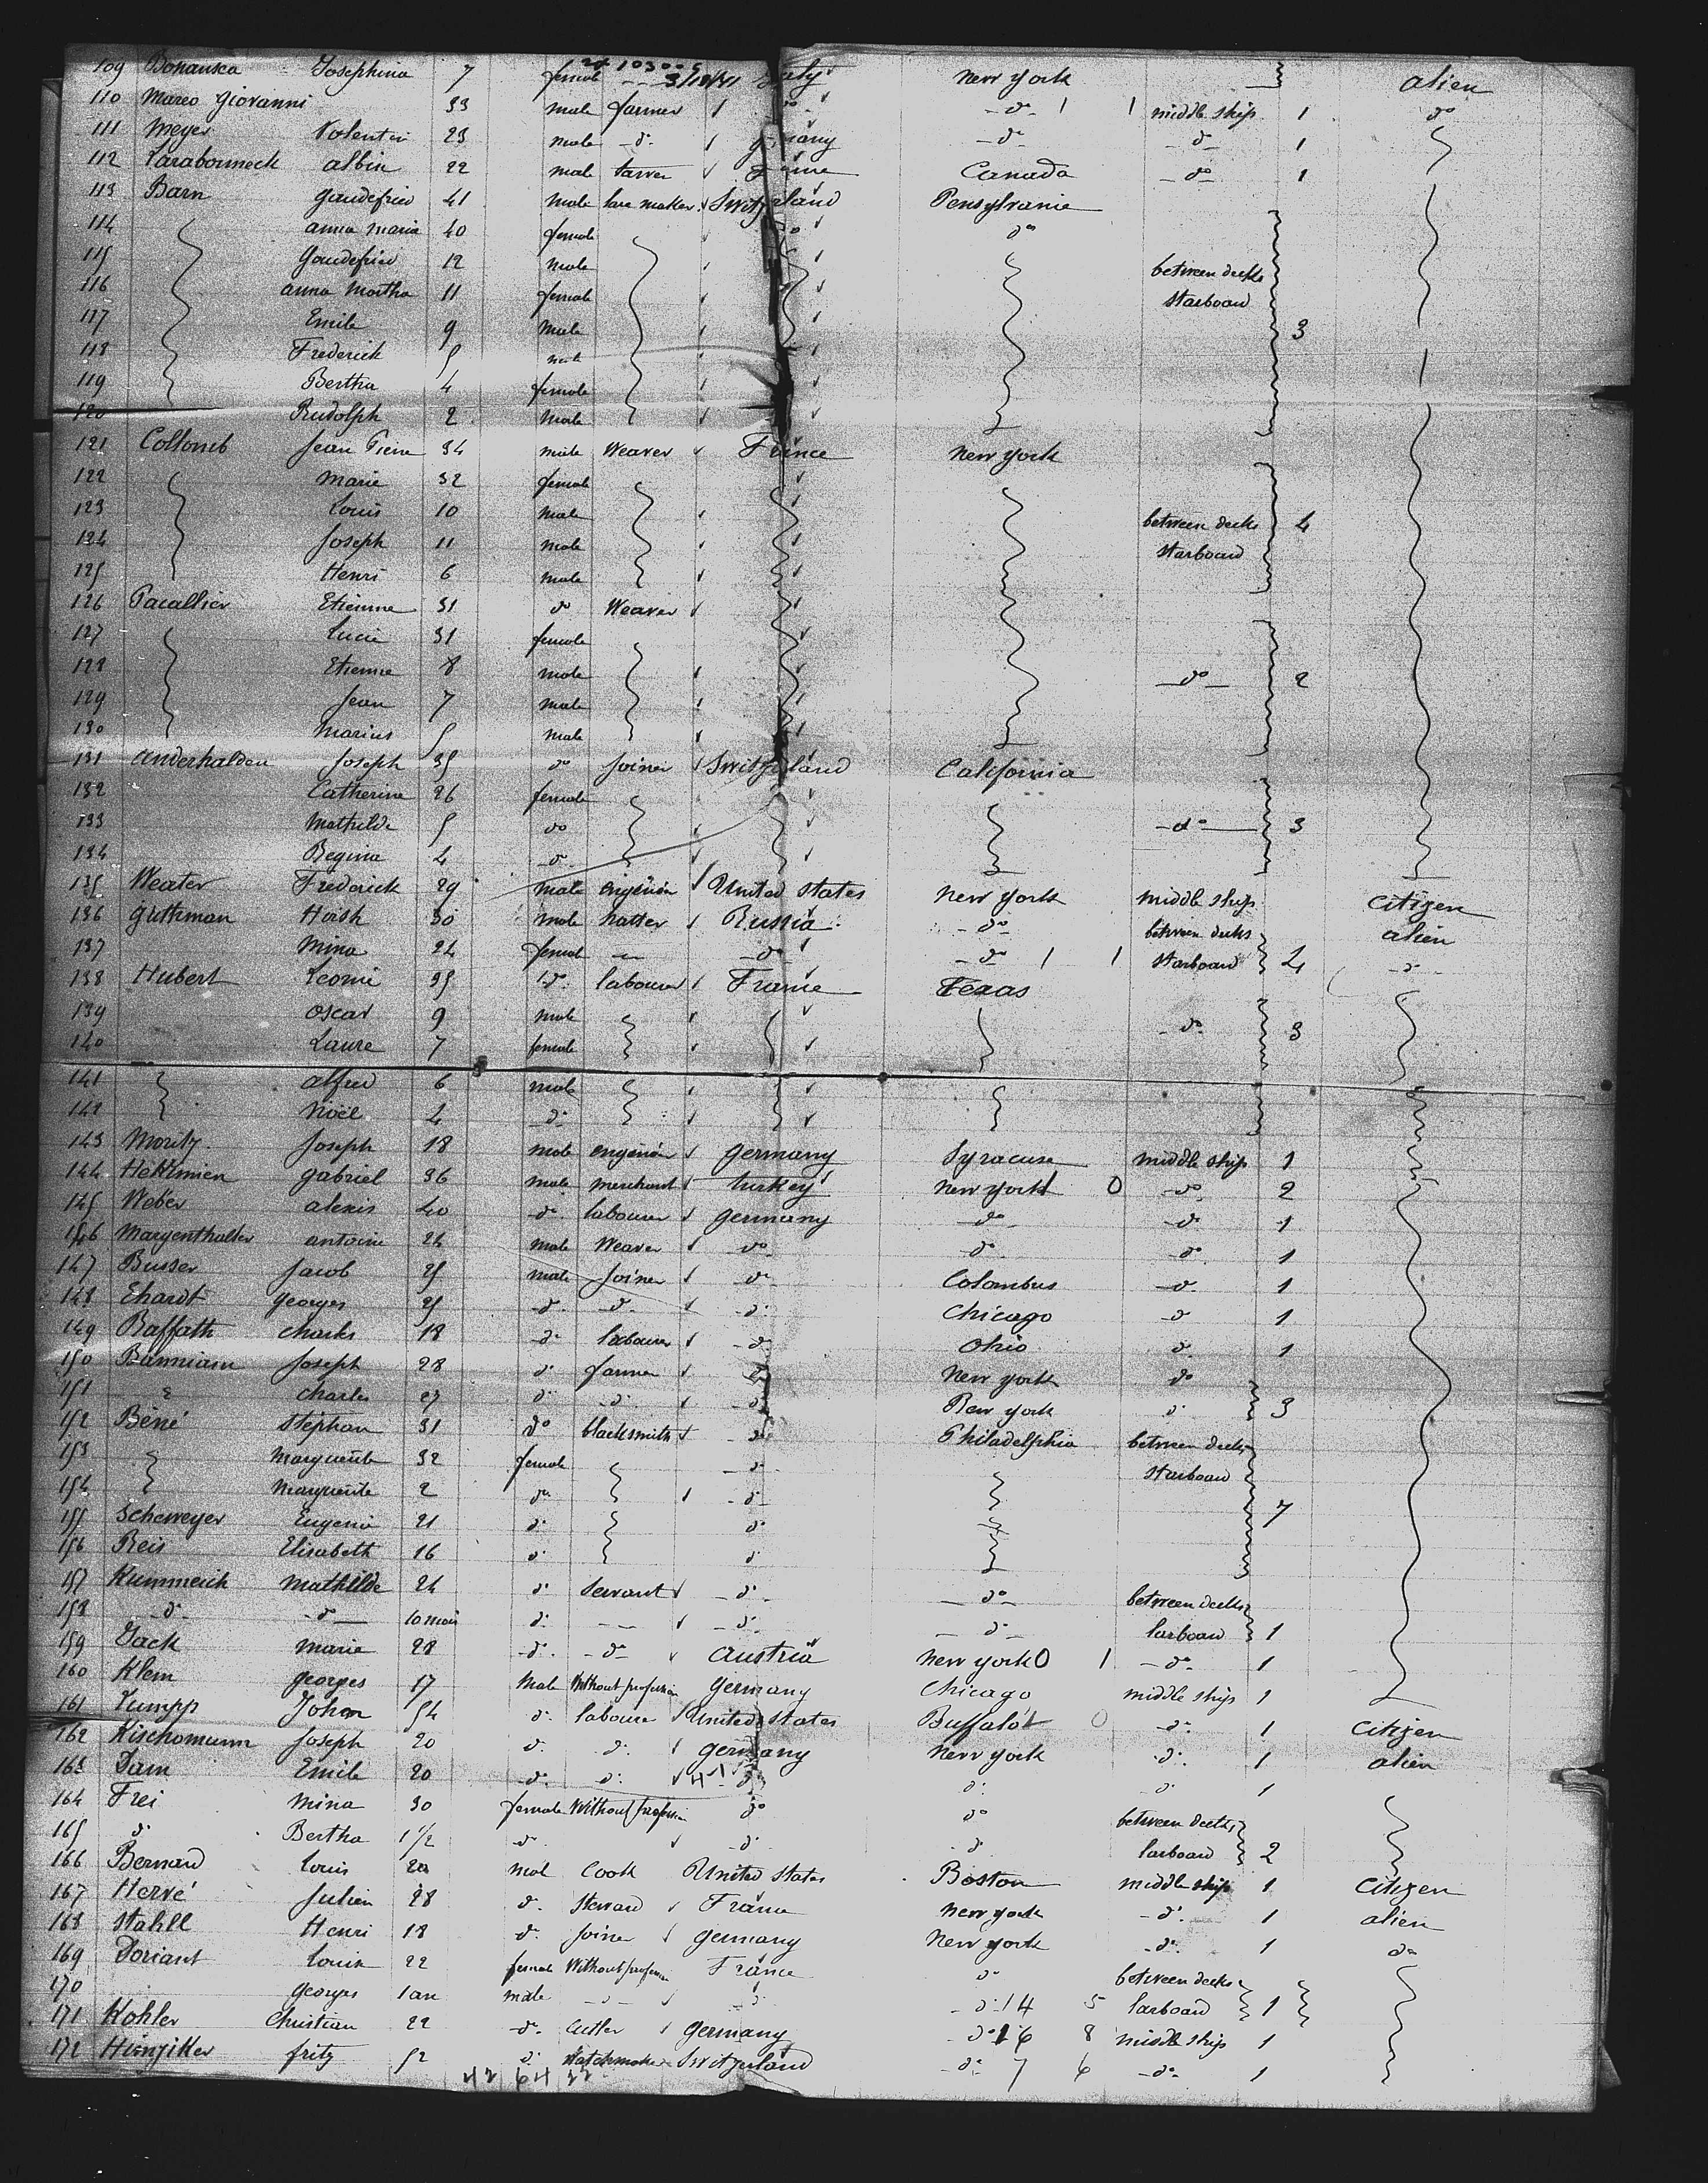 109 Bonansea Josephina 7 female 3/18/41 Italy New York alien
110 Mareo Giovanni 33 male farmer do - do - 1 1 middle ship 1 do
111 Meyer Valentin 23 male - do - Germany - do - - do - 1
112 albin 22 male France Canada - do - 1
113 Barn Gaudefried 41 male Switzerland Pensylvanie
114 anna maria 40 female do do
115 Gaudefried 12 male between decks
116 anna Martha 11 female starboard
117 Emile 9 male 3
118 Frederick 5 male
119 Bertha 4 female
120 Rudolph 2 male
121 Collomb Jean Pierre 34 male Weaver France New york
122 Marie 32 female
123 Louis 10 male between decks 4
124 Joseph 11 male starboard
125 Henri 6 male
126 Pacallier Etienne 31 do Weaver
127 Lucie 31 female
128 Etienne 8 male - do - 2
129 Jean 7 male
130 Marius 5 male
131 anderhalden Joseph 35 do Joiner Switzerland California
132 Catherine 26 female
133 Mathilde 5 do - do - 3
134 Regina 4 - do -
135 Weater Frederick 29 male United states New York middle ship citizen
136 Guthman Hirsh 30 male hatter Russia - do - between decks alien
137 Mina 24 female - do - - do - 1 1 starboard 2 - do -
138 Hubert Leonie 35 do labourer France Texas
139 oscar 9 male - do - 3
140 Laure 7 female
141 alfred 6 male
142 Noël 4 - do -
143 Moritz Joseph 18 male Germany Syracuse middle ship 1
144 Hekkimien gabriel 36 male merchant turkey New york 0 - do - 2
145 Weber alexis 40 - do - labourer germany - do - - do - 1
146 Margenthaller antoine 24 male Weaver do - do - - do - 1
147 Busser Jacob 25 male Joiner - do - Colombus - do - 1
148 Ehardt Georges 25 - do - - do - - do - Chicago - do 1
149 Baffath charles 18 - do - labourer - do - Ohio do 1
150 Joseph 28 do farmer do New york do
151 charles 27 do do do New york do 3
152 Béné stephan 31 do blacksmith do Philadelphia between decks
153 Marguerite 32 female - do starboard
154 Marguerite 2 do - do -
155 Scheweyer Eugenie 21 do do 7
156 Reis Elisabeth 16 do do
157 Kummerich Mathilde 24 do Servant - do - - do - between decks
158 - do - - do - 10 mois do - - - do - - do - larboard 1
159 Jack Marie 28 - do - - do - Austria New york 0 1 - do - 1
160 Klem georges 17 Male Without profession Germany Chicago middle ship 1
161 Johan 54 do labourer United states Buffalo 0 - do - 1 citizen
162 Kischomann Joseph 20 do do germany New york - do - 1 alien
163 Dam Emile 20 - do - do do do do 1
164 Frei Mina 30 female Without profession do do between decks
165 do Bertha 1 1/2 - do - do - do larboard 2
166 Bernard Louis 20 mal Cook United states Boston middle ship 1 citizen
167 Hervé Julien 28 do Steward France New york - do - 1 alien
168 Stahll Henri 18 do Joiner Germany New york - do - 1 do
169 Doriant Louise 22 female Without profession France do between decks
170 Georges 1 an male - - do - do 14 5 larboard 1
171 Kohler Christian 22 - do - Cutler Germany - do 16 8 middle ship 1
172 fritz 52 do Watchmaker Switzerland - do - 7 6 - do - 1
42 64 22